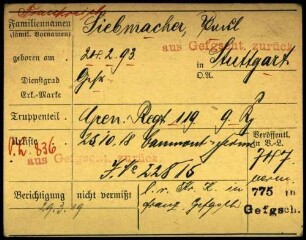 Frankreich
Familiennamen Siebmacher, Karl
(sämtl. Vornamen)
aus Gefgscht. zurück
geboren am 24.2.93. in Stuttgart
O.A.
Dienstgrad Gefr.
Erk-Marke
Truppenteil Gren. Regt 119 9. Kp
25.10.18
Veröffentl.
in V.-L.
P.L. 836
aus Gefgscht. zurück
F. Ve 22816
Berichtigung nicht vermißt l. v. in
29.3.19 franz. Gefgsch
775 in
Gefgsch.